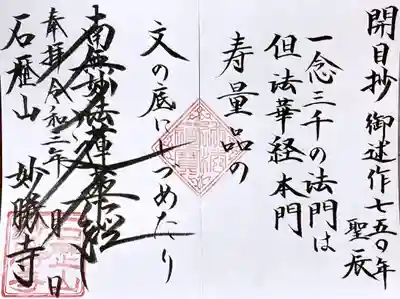 開目抄 御述作七五〇年
聖辰
一念三千の法門は
但法華経本門
寿量品の
文の底にしつめたり
南無妙法蓮華経
奉拝 令和三年 月 日
石歴山 妙勝寺